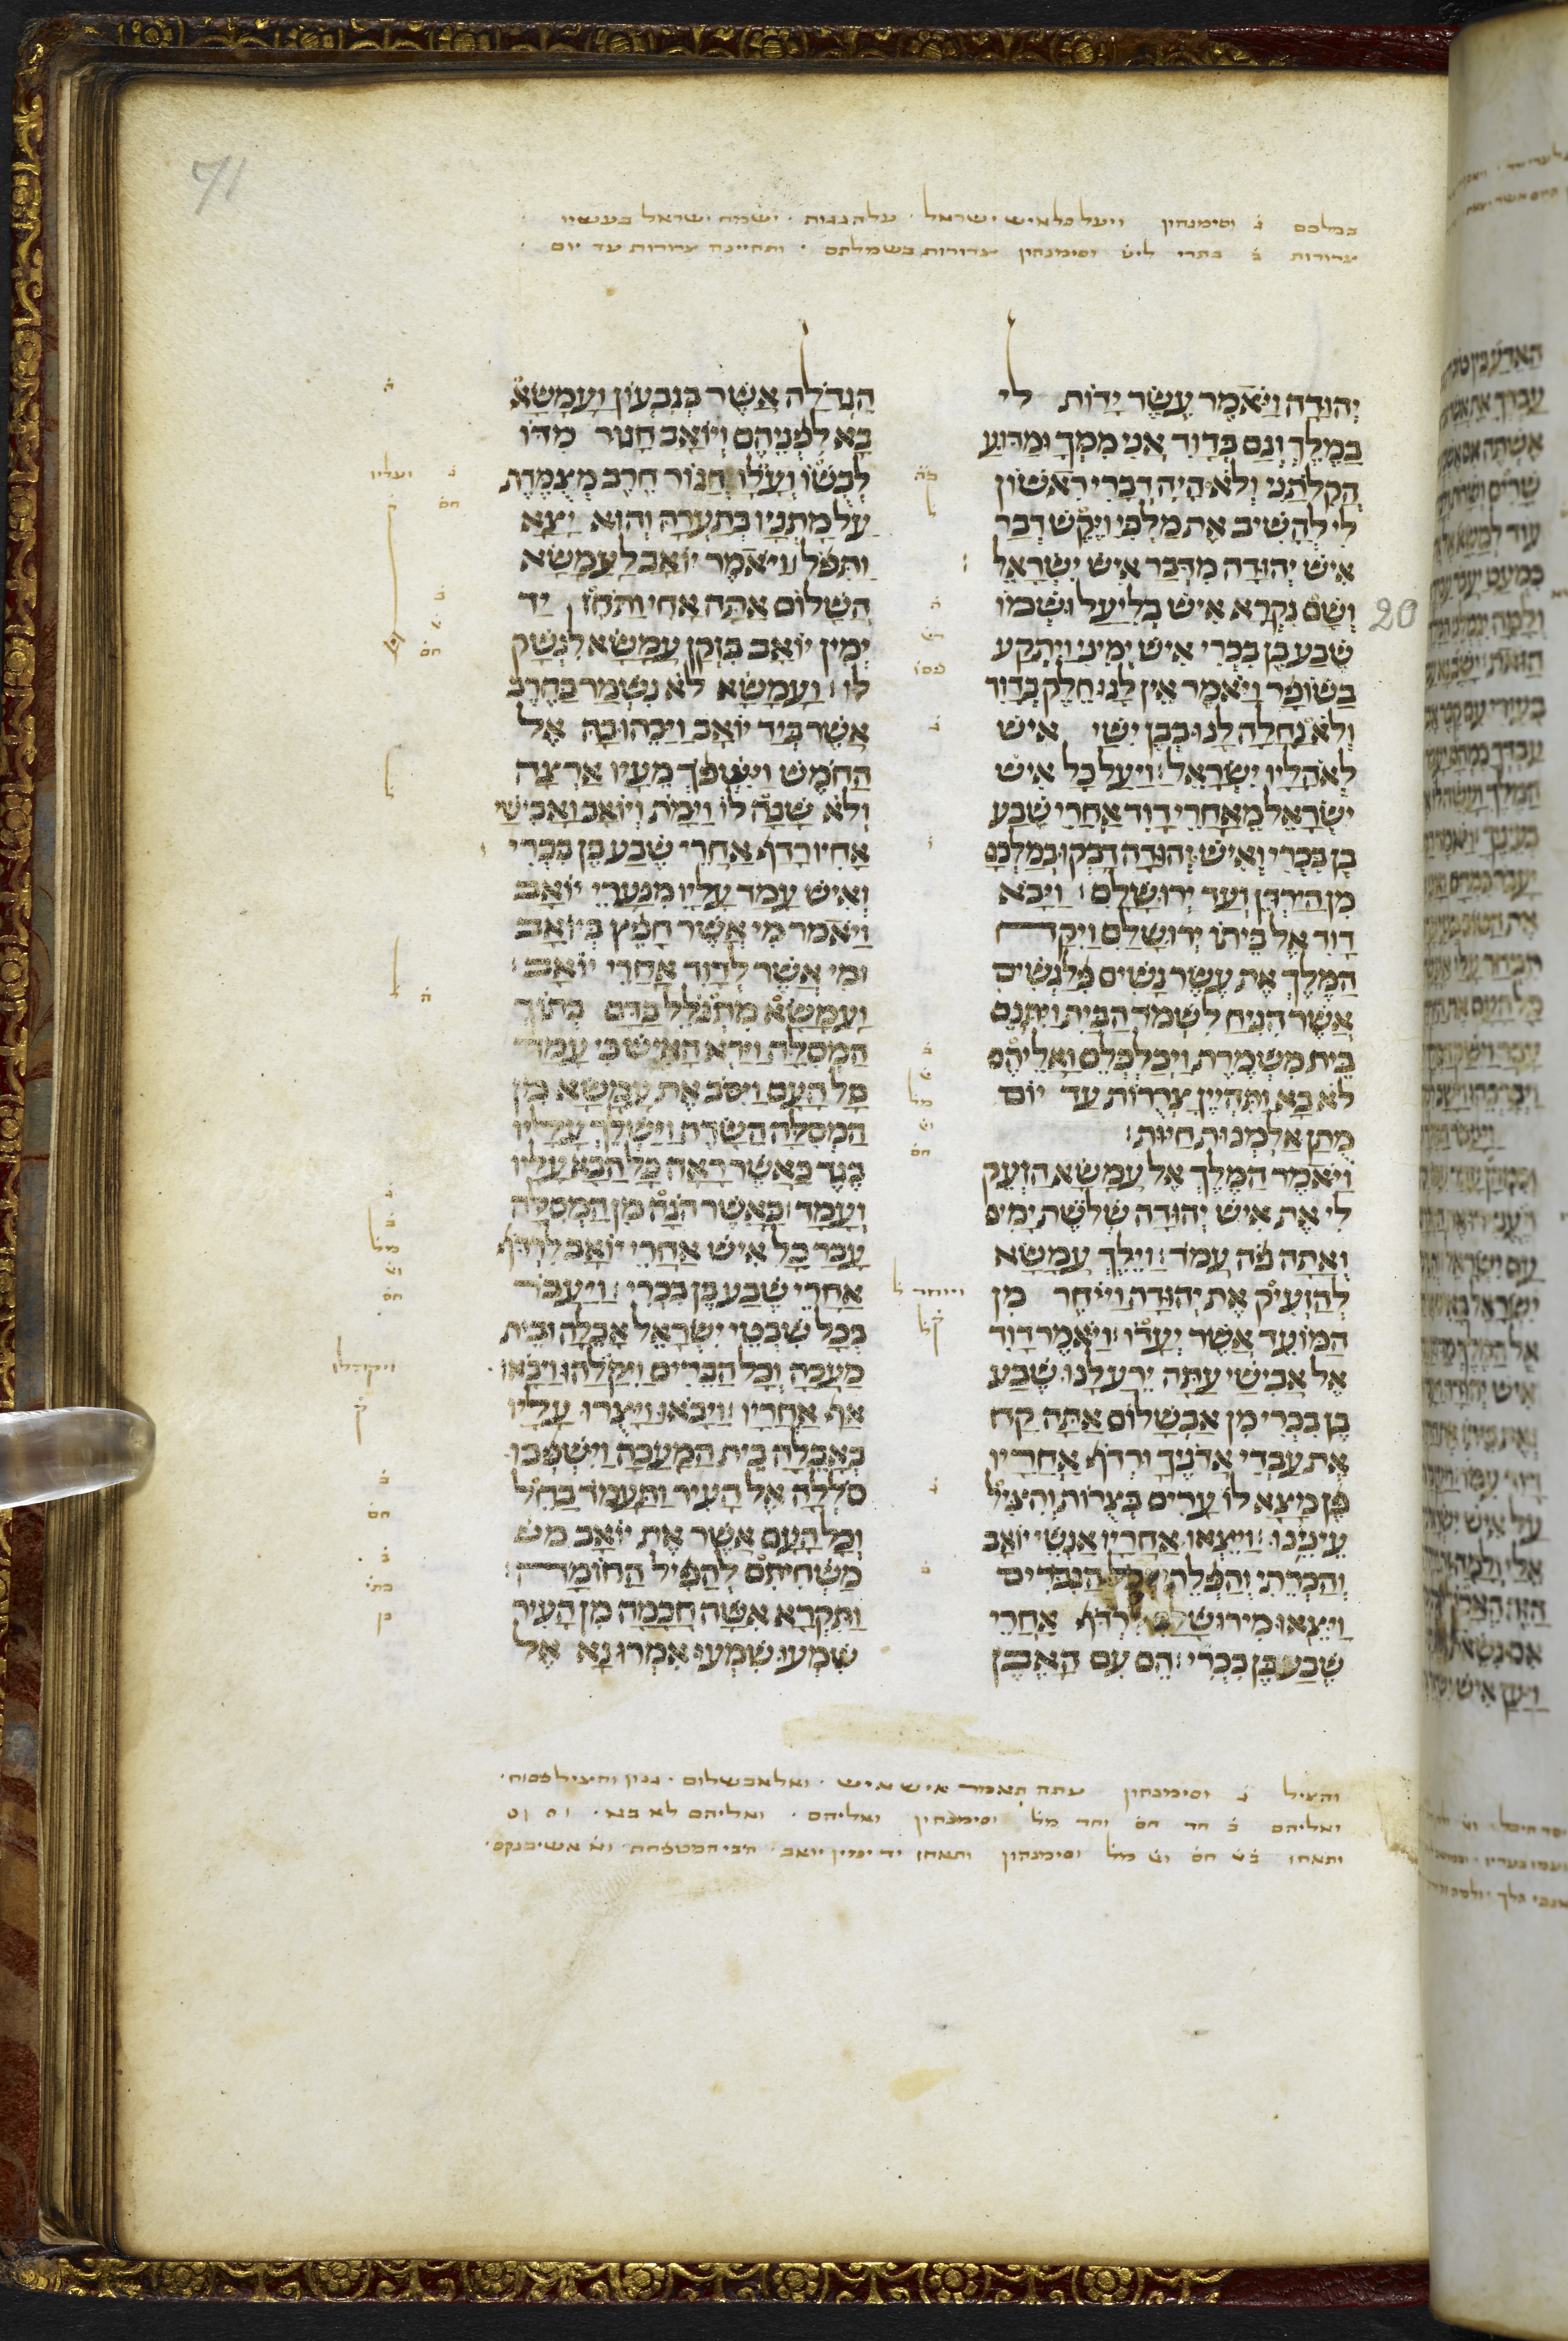 71
במלכם ג וסימנהון ויעל כל איש ישראל · על הגגות · ישמח ישראל בעשיו
צרורות ב בתרי ליש וסימנהון צרורות בשמלתם · ותהיינה צרורות עד יום
יהודה ויאמר עשר ידות לי
במלך וגם בדוד אני ממך ומדוע
הקלתני ולא היה דברי ראשון
לי להשיב את מלכי ויקש דבר
איש יהודה מדבר איש ישראל׃
20
ושם נקרא איש בליעל ושמו
שבע בן בכרי איש ימיני ויתקע
בשופר ויאמר אין לנו חלק בדוד
ולא נחלה לנו בבן ישי איש
לאהליו ישראל׃ ויעל כל איש
ישראל מאחרי דוד אחרי שבע
בן בכרי ואיש יהודה דבקו במלכם
מן הירדן ועד ירושלם׃ ויבא
דוד אל ביתו ירושלם ויקח
המלך את עשר נשים פלגשים
אשר הניח לשמר הבית ויתנם
בית משמרת ויכלכלם ואליהם
לא בא ותהיין צררות עד יום
מתן אלמנות חיות׃
ויאמר המלך אל עמשא הזעק
לי את איש יהודה שלשת ימים
ואתה פה עמד׃ וילך עמשא
להזעיק את יהודה וייחר מן
המועד אשר יעדו׃ ויאמר דוד
אל אבישי עתה ירע לנו שבע
בן בכרי מן אבשלום אתה קח
את עבדי אדניך ורדף אחריו
פן מצא לו ערים בצרות והציל
עיננו׃ ויצאו אחריו אנשי יואב
והכרתי והפלתי וכל הגברים
ויצאו מירושלם לרדף אחרי
שבע בן בכרי׃ הם עם האבן
הגדלה אשר בגבעון ועמשא
בא לפניהם ויואב חגור מדו
לבשו ועלו חגור חרב מצמדת
על מתניו בתערה והוא יצא
ותפל׃ ויאמר יואב לעמשא
השלום אתה אחי ותחז יד
ימין יואב בזקן עמשא לנשק
לו׃ ועמשא לא נשמר בחרב
אשר ביד יואב ויכהו בה אל
החמש וישפך מעיו ארצה
ולא שנה לו וימת ויואב ואבישי
אחיו רדף אחרי שבע בן בכרי׃
ואיש עמד עליו מנערי יואב
ויאמר מי אשר חפץ ביואב
ומי אשר לדוד אחרי יואב׃
ועמשא מתגלל בדם בתוך
המסלה וירא האיש כי עמד
כל העם ויסב את עמשא מן
המסלה השדה וישלך עליו
בגד כאשר ראה כל הבא עליו
ועמד׃ כאשר הגה מן המסלה
עבר כל איש אחרי יואב לרדף
אחרי שבע בן בכרי׃ ויעבר
בכל שבטי ישראל אבלה ובית
מעכה וכל הברים ויקלהו ויבאו
אף אחריו׃ ויבאו ויצרו עליו
באבלה בית המעכה וישפכו
סללה אל העיר ותעמד בחל
וכל העם אשר את יואב מש
משחיתם להפיל החומה׃
ותקרא אשה חכמה מן העיר
שמעו שמעו אמרו נא אל
ועליו
וייוחר
ויקהלו
והציל ג וסימנהון עתה תאמר איש איש · ואל אבשלום · גנון והציל פסוח ·
ואליהם ב חד חס וחד מל וסימנהון ואליהם · ואליהם לא בא ·
ותאחז וסימנהון ותאחז יד ימין יואב